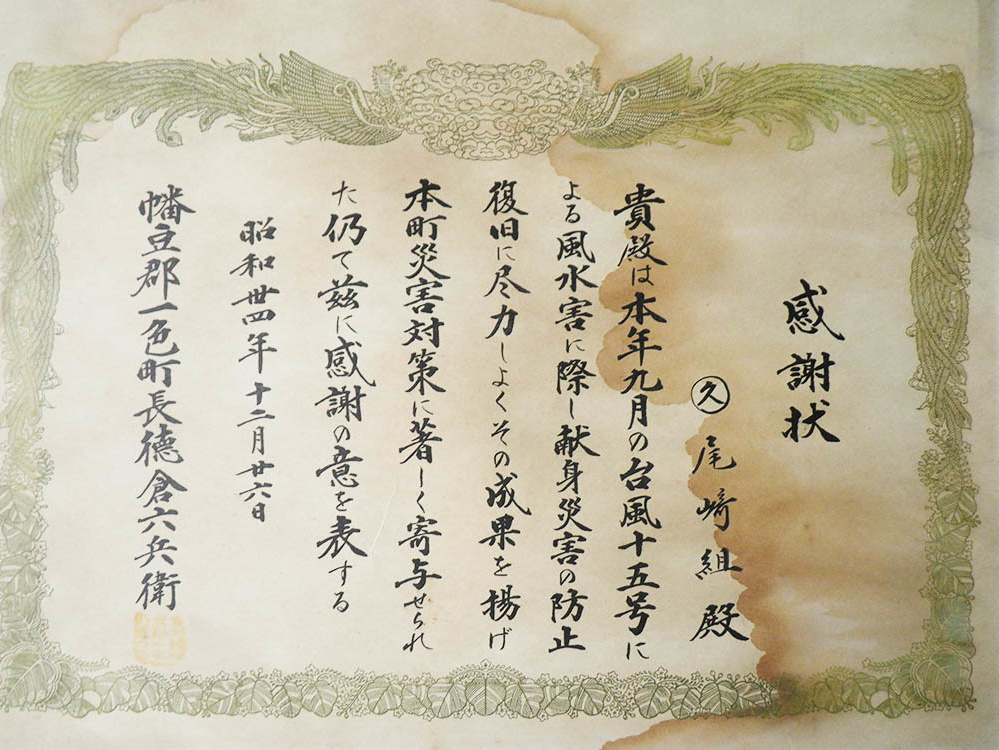 感謝状
㊇尾崎組殿
貴殿は本年九月の台風十五号に
よる風水害に際し献身災害の防止
復旧に尽力しよくその成果を揚げ
本町災害対策に著しく寄与せられ
た仍て茲に感謝の意を表する
昭和卅四年十二月廿六日
幡豆郡一色町長徳倉六兵衛